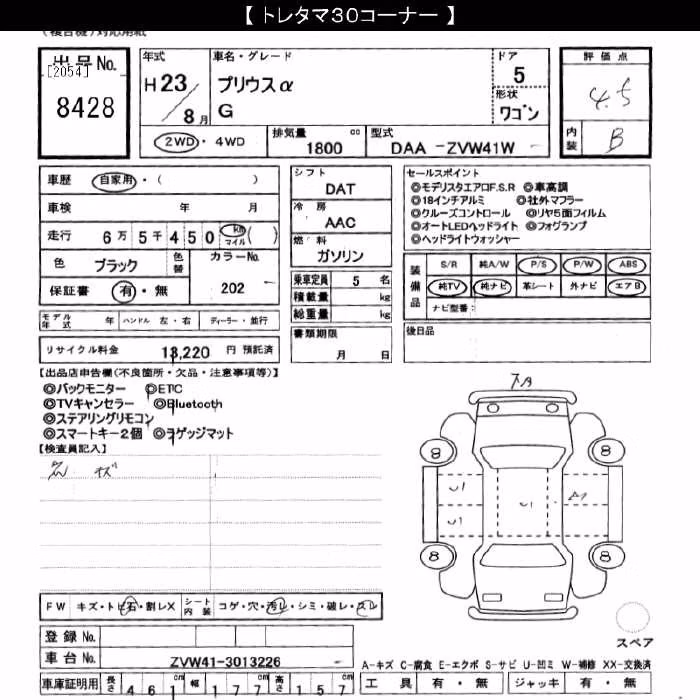 【 トレタマ30コーナー 】
(複合機)対応用紙
出品No.
[2054]
8428
年式
H 23
8 月
車名・グレード
プリウスα
G
ドア
5
形状
ワゴン
評価点
4.5
内装
B
2WD・4WD
排気量 1800 cc
型式 DAA -ZVW41W
車歴 自家用・( )
車検 年 月
走行 6万 5千 4 5 0 km マイル ( )
色 ブラック 色替 カラーNo.
保証書 有・無 202
モデル年式 年 ハンドル 左・右 ディーラー・並行
リサイクル料金 13,220 円 預託済
シフト
DAT
冷房
AAC
燃料
ガソリン
乗車定員 5 名
積載量 kg
総重量 kg
書類期限
月 日
セールスポイント
◎モデリスタエアロF.S.R ◎車高調
◎18インチアルミ ◎社外マフラー
◎クルーズコントロール ◎リヤ5面フィルム
◎オートLEDヘッドライト ◎フォグランプ
◎ヘッドライトウォッシャー
装備品
S/R 純A/W P/S P/W ABS
純TV 純ナビ 革シート 外ナビ エアB
ナビ型番:
後日品
【出品店申告欄(不良箇所・欠品・注意事項等)】
◎バックモニター ◎ETC
◎TVキャンセラー ◎Bluetooth
◎ステアリングリモコン
◎スマートキー2個 ◎ヨゲッジマット
【検査員記入】
キズ
8 8
U1 U1 A1
U1
8 8
スペア
FW キズ・トビ石・割レX シート内装 コゲ・穴・汚レ・シミ・破レ・スレ
登録 No.
車台 No. ZVW41-3013226
車庫証明用 長さ 461 cm 幅 177 cm 高さ 157 cm
A-キズ C-腐食 E-エクボ S-サビ U-凹ミ W-補修 XX-交換済
工具 有・無 ジャッキ 有・無